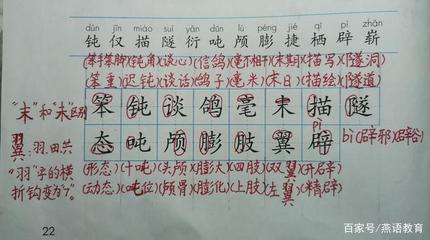 dùn jǐn miáo suì yǎn dūn lú péng jié qī pì zhǎn
钝 仅 描 隧 衍 吨 颅 膨 捷 栖 辟 崭
(笨手笨脚)(钝角)(谈心)(信鸽)(毫不相干)(末期)(描写)(隧洞)
(笨重)(迟钝)(谈话)(鸽子)(毫米)(末日)(描绘)(隧道)
"末"和"未"区别
笨 钝 谈 鸽 毫 末 描 隧
pì
态 吨 颅 膨 肢 翼 辟
bì(辟邪)(辟谷)
翼:羽.田共
"羽"字的横折钩变为"7"。
(形态)(十吨)(头颅)(膨大)(四肢)(双翼)(开辟)
(动态)(吨位)(颅骨)(膨化)(上肢)(左翼)(精辟)
22
百家号/燕语教育